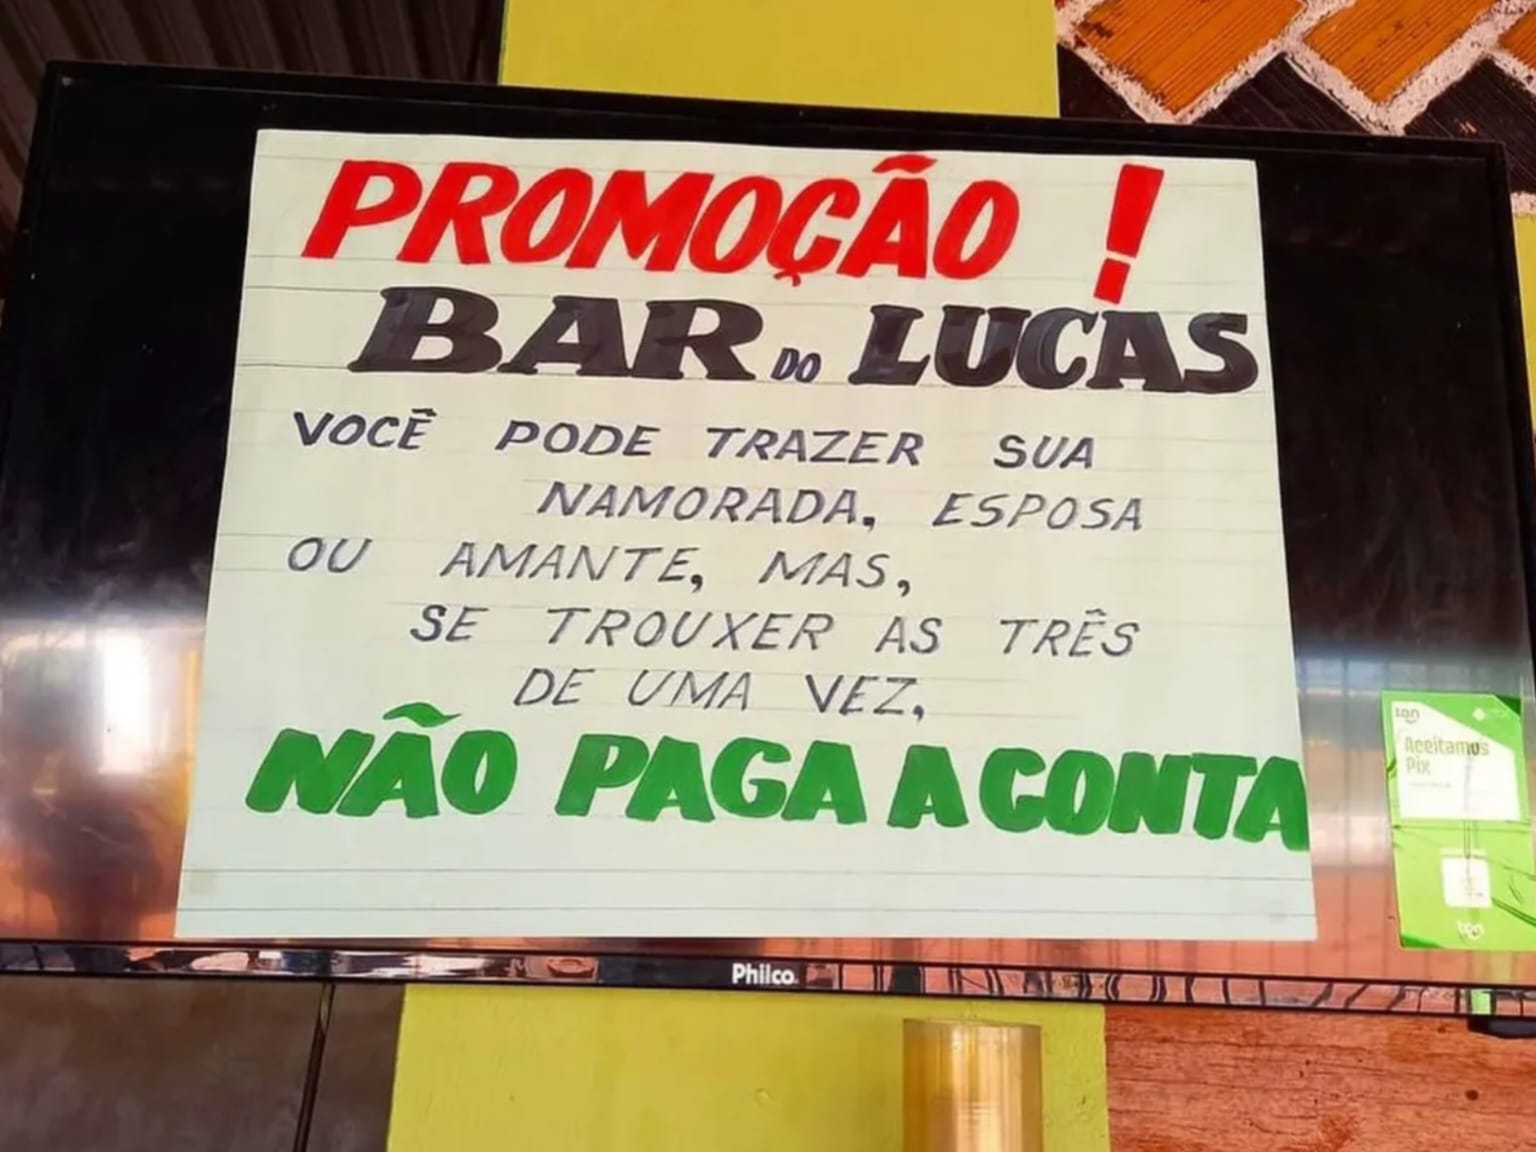 PROMOÇÃO !
BAR DO LUCAS
VOCÊ PODE TRAZER SUA
NAMORADA, ESPOSA
OU AMANTE, MAS,
SE TROUXER AS TRÊS
DE UMA VEZ,
NÃO PAGA A CONTA
ton
Aceitamos
Pix
ton
Philco